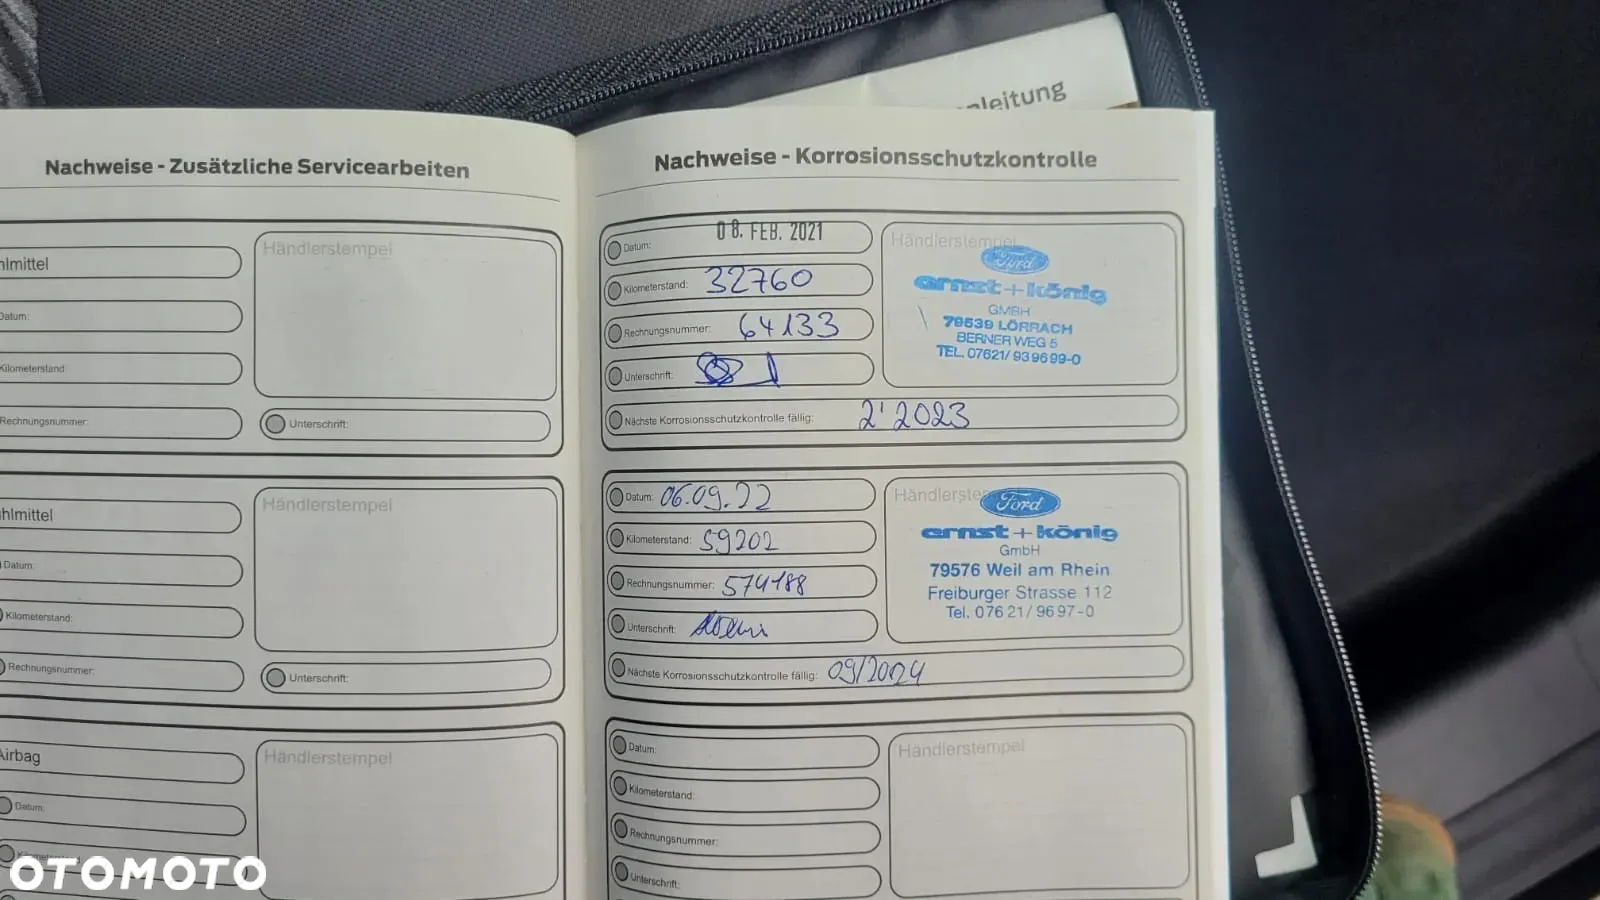 nleitung
Nachweise - Zusätzliche Servicearbeiten
hlmittel
Händlerstempel
Datum:
Kilometerstand:
Rechnungsnummer:
Unterschrift:
hlmittel
Händlerstempel
Datum:
Kilometerstand:
Rechnungsnummer:
Unterschrift:
Airbag
Händlerstempel
Datum:
Kilometerstand:
Nachweise - Korrosionsschutzkontrolle
Datum: 08. FEB. 2021
Kilometerstand: 32760
Rechnungsnummer: 64133
Unterschrift:
Händlerstempel
Ford
ernst+könig
GMBH
79539 LÖRRACH
BERNER WEG 5
TEL. 07621/939699-0
Nächste Korrosionsschutzkontrolle fällig: 2'2023
Datum: 06.09.22
Kilometerstand: 59202
Rechnungsnummer: 574188
Unterschrift:
Händlerstempel
Ford
ernst+könig
GmbH
79576 Weil am Rhein
Freiburger Strasse 112
Tel. 07621/9697-0
Nächste Korrosionsschutzkontrolle fällig: 09/2024
Datum:
Kilometerstand:
Rechnungsnummer:
Unterschrift:
Händlerstempel
OTOMOTO